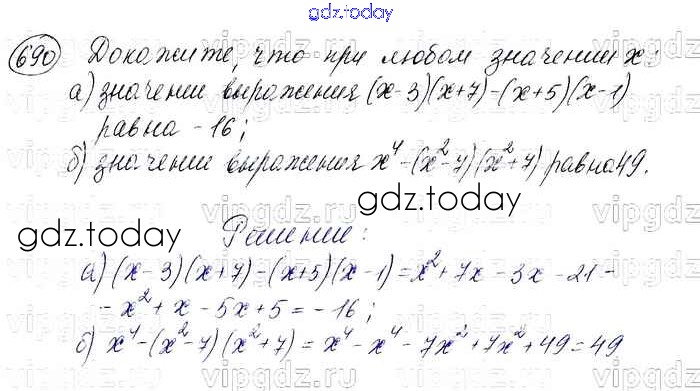 gdz.today
690 Докажите, что при любом значении x:
а) значение выражения (x-3)(x+7)-(x+5)(x-1)
равна -16;
б) значение выражения x⁴-(x²-7)(x²+7) равна 49.
vipgdz.ru
gdz.today
gdz.today
Решение:
а) (x-3)(x+7)-(x+5)(x-1)=x²+7x-3x-21-
-x²+x-5x+5=-16;
б) x⁴-(x²-7)(x²+7)=x⁴-x⁴-7x²+7x²+49=49
vipgdz.ru